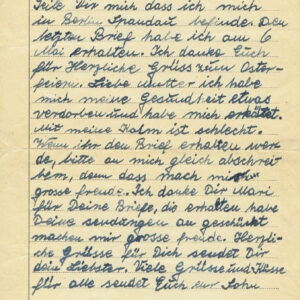 Teile Dir mich dass ich mich
in Berlin Spandau befinde. Den
letzten Brief habe ich am 6
Mai erhalten. Ich danke Euch
für Herzliche Grüss vum Oster-
feiern. Liebe mutter ich habe
mich meine Gestudheit etwas
verdorben und habe mich erkältet.
Mit meine Halm ist schlecht.
Wenn ihr den Brief erhalten wer-
de, bitte an mich gleich abschrei-
bem, denn dass mach mir
grosse freude. Ich danke Dir Mari
für Deine Briefe, die erhalten habe
Deine sendungen an geschückt
machen mir grosse freude. Herzli-
che Grüsse für Dich sendet Dir
dein Liebster. Viele Grüsse und Küsse
für alle sendet Euch eur Sohn